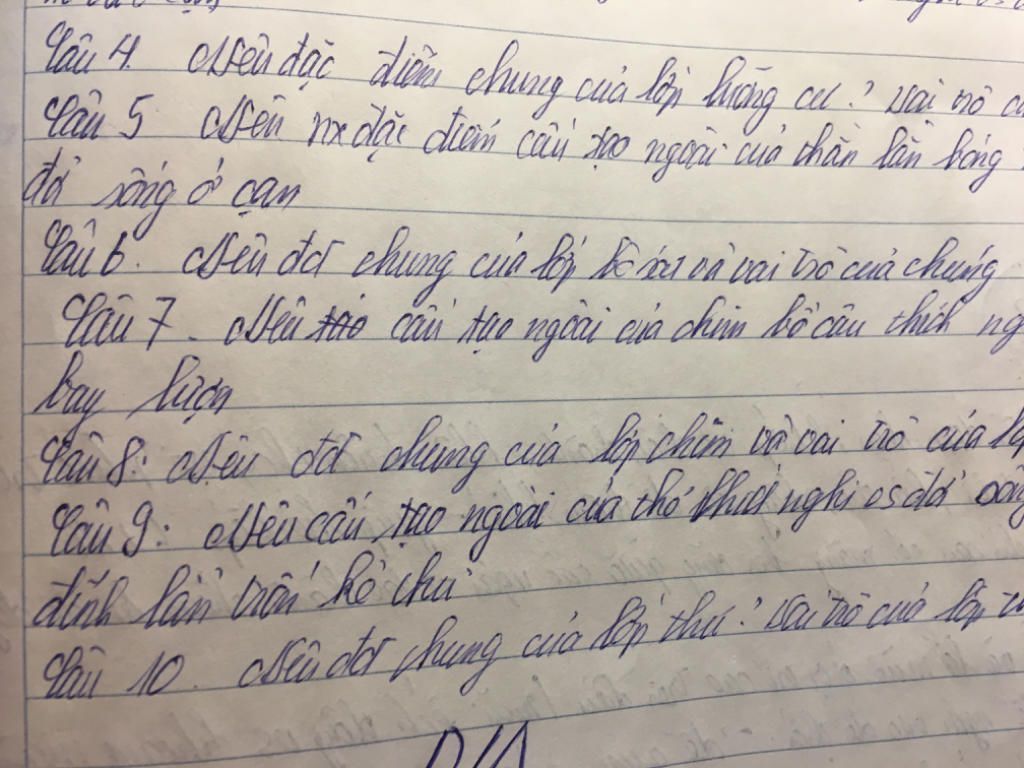 Câu 4. Nêu đặc điểm chung của lớp lưỡng cư? Vai trò
Câu 5 Nêu đặc điểm cấu tạo ngoài của thằn lằn bóng
đời sống ở cạn
Câu 6. Nêu đđ chung của lớp bò sát và vai trò của chúng
Câu 7. Nêu cấu tạo ngoài của chim bồ câu thích
bay lượn
Câu 8: Nêu đđ chung của lớp chim và vai trò của
Câu 9: Nêu cấu tạo ngoài của thỏ thích nghi đời
lẩn trốn kẻ thù
Câu 10. Nêu đđ chung của lớp thú? Vai trò của lớp